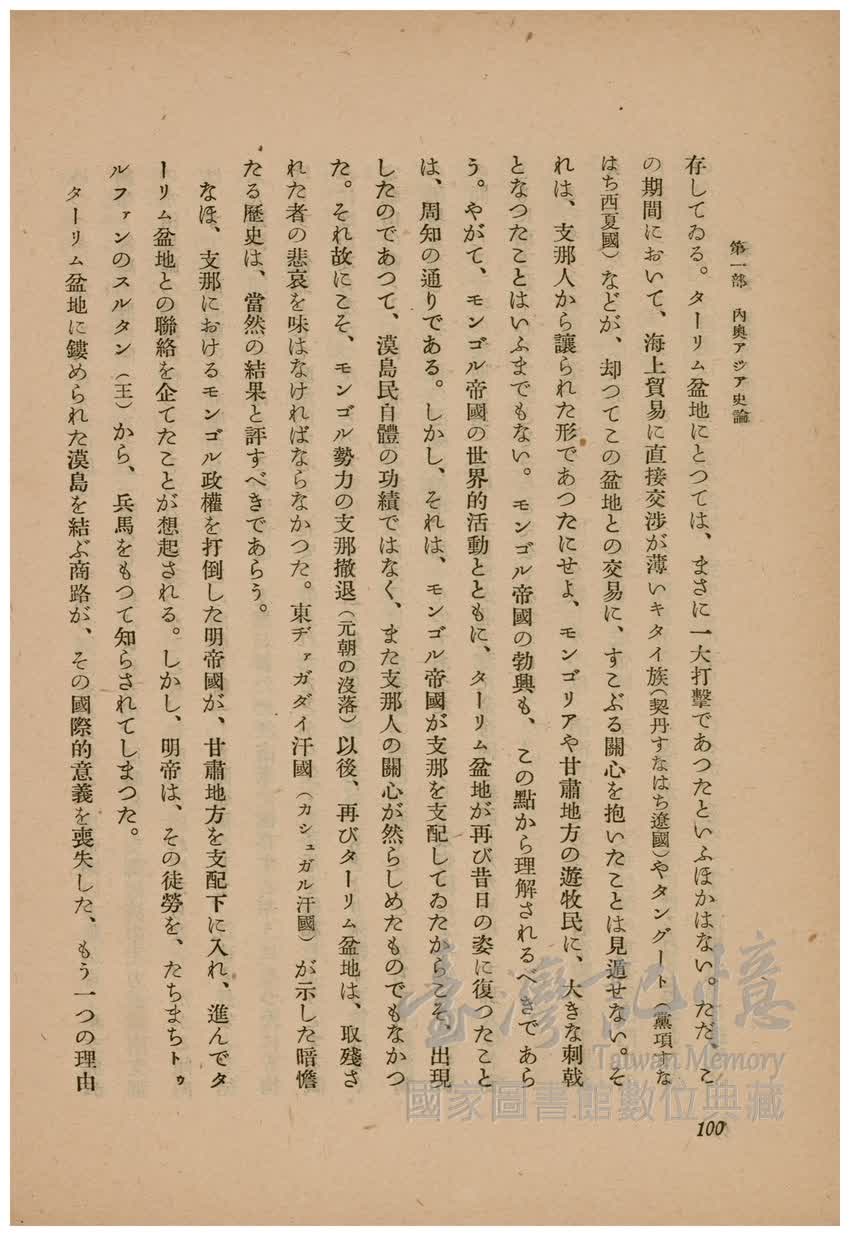 第一部　內奧アジア史論
存してゐる。ターリム盆地にとつては、まさに一大打擊であつたといふほかはない。ただ、こ
の期間において、海上貿易に直接交涉が薄いキタイ族（契丹すなはち遼國）やタングート（黨項すな
はち西夏國）などが、却つてこの盆地との交易に、すこぶる關心を抱いたことは見遁せない。そ
れは、支那人から讓られた形であつたにせよ、モンゴリアや甘肅地方の遊牧民に、大きな刺戟
となつたことはいふまでもない。モンゴル帝國の勃興も、この點から理解されるべきであら
う。やがて、モンゴル帝國の世界的活動とともに、ターリム盆地が再び昔日の姿に復つたこと
は、周知の通りである。しかし、それは、モンゴル帝國が支那を支配してゐたからこそ、出現
したのであつて、漠島民自體の功績ではなく、また支那人の關心が然らしめたものでもなかつ
た。それ故にこそ、モンゴル勢力の支那撤退（元朝の沒落）以後、再びターリム盆地は、取殘さ
れた者の悲哀を味はなければならなかつた。東ヂァガダイ汗國（カシュガル汗國）が示した暗憺
たる歷史は、當然の結果と評すべきであらう。
なほ、支那におけるモンゴル政權を打倒した明帝國が、甘肅地方を支配下に入れ、進んでタ
ーリム盆地との聯絡を企てたことが想起される。しかし、明帝は、その徒勞を、たちまちトゥ
ルファンのスルタン（王）から、兵馬をもつて知らされてしまつた。
ターリム盆地に鏤められた漠島を結ぶ商路が、その國際的意義を喪失した、もう一つの理由
100
臺灣記憶
Taiwan Memory
國家圖書館數位典藏